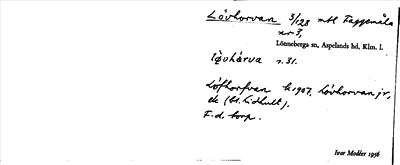 Lövhorvan 3/123 mtl Faggemåla
nr 3,
Lönneberga sn, Aspelands hd, Klm. l.
lø̀vhàrva s. 31.
Löfhorfvan k 1907, Lövhorvan jr,
ek (bl. Lidhult).
F.d. torp.
Ivar Modéer 1936